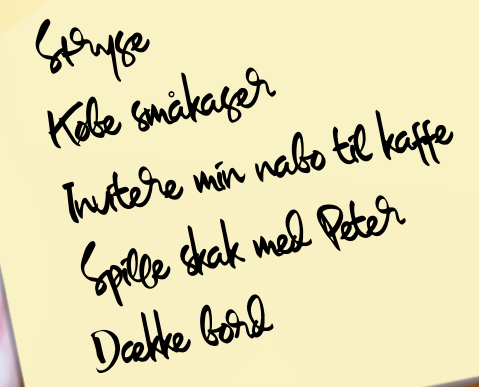 Stryge
Købe småkager
Invitere min nabo til kaffe
Spille skak med Peter
Dække bord